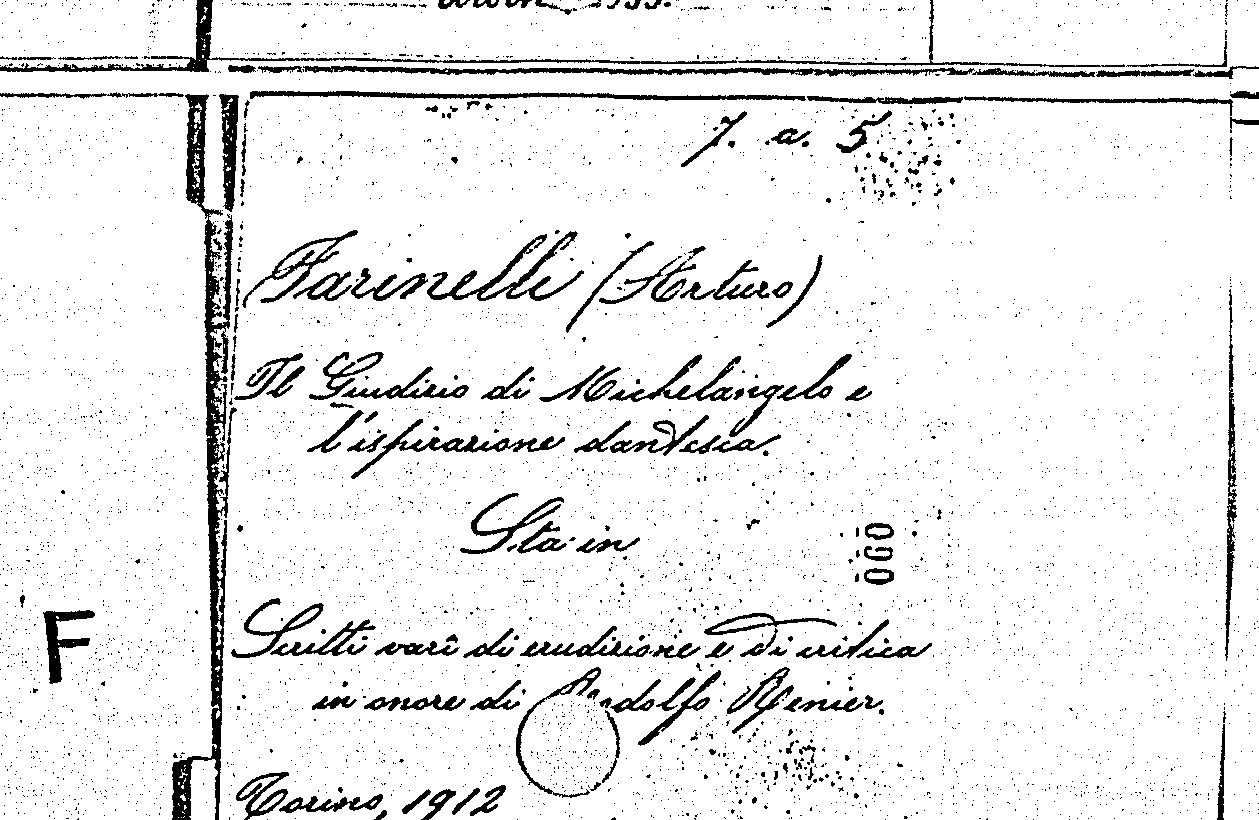 1933.
7. a. 5
Farinelli (Arturo)
Il Giudizio di Michelangelo e
l'ispirazione dantesca.
Sta in
060
Scritti varî di erudizione e di critica
in onore di Rodolfo Renier.
F
Torino, 1912